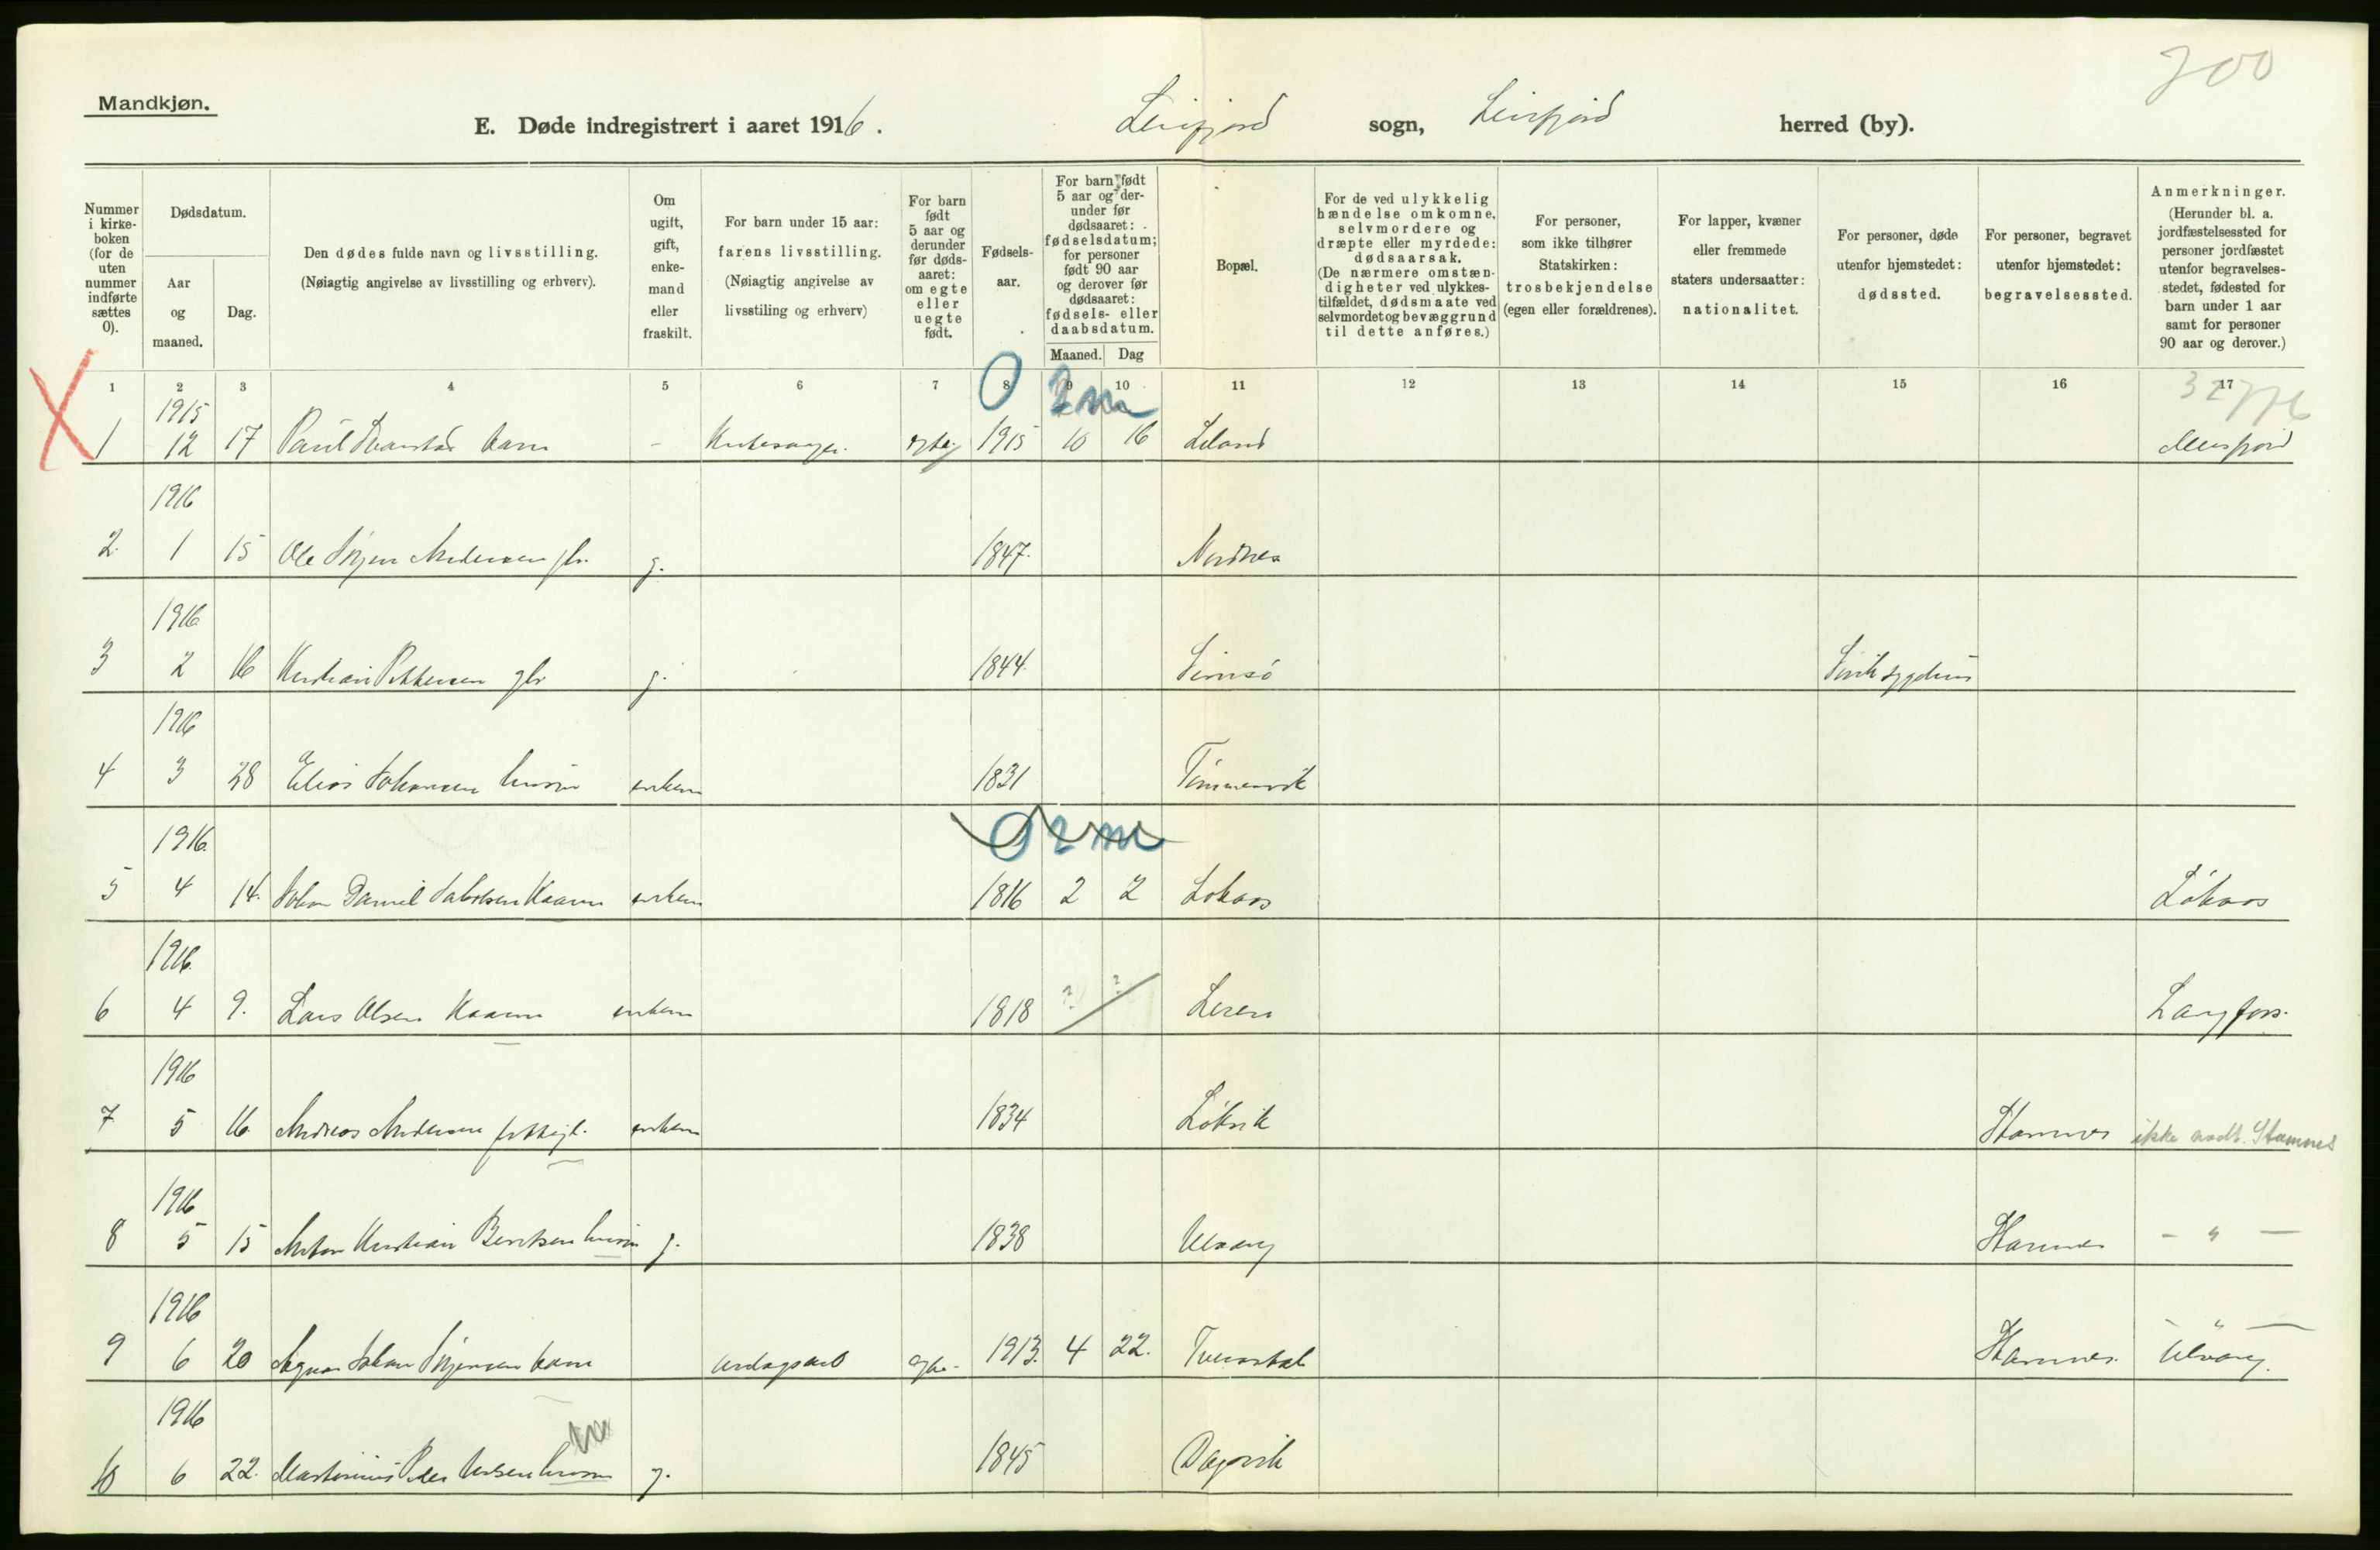 200
Mandkjøn.
E. Døde indregistrert i aaret 1916. Leirfjord sogn, Leirfjord herred (by).
Nummer i kirkeboken (for de uten nummer indførte sættes 0).
Dødsdatum.
Aar og maaned.
Dag.
Den dødes fulde navn og livsstilling.
(Nøiagtig angivelse av livsstilling og erhverv).
Om ugift, gift, enkemand eller fraskilt.
For barn under 15 aar: farens livsstilling.
(Nøiagtig angivelse av livsstiling og erhverv)
For barn født 5 aar og derunder før dødsaaret: om egte eller uegte født.
Fødselsaar.
For barn født 5 aar og derunder før dødsaaret: fødselsdatum; for personer født 90 aar og derover før dødsaaret: fødsels- eller daabsdatum.
Maaned. Dag
Bopæl.
For de ved ulykkelig hændelse omkomne, selvmordere og dræpte eller myrdede: dødsaarsak.
(De nærmere omstændigheter ved ulykkestilfældet, dødsmaate ved selvmordet og bevæggrund til dette anføres.)
For personer, som ikke tilhører Statskirken: trosbekjendelse (egen eller forældrenes).
For lapper, kvæner eller fremmede staters undersaatter: nationalitet.
For personer, døde utenfor hjemstedet: dødssted.
For personer, begravet utenfor hjemstedet: begravelsessted.
Anmerkninger.
(Herunder bl. a. jordfæstelsessted for personer jordfæstet utenfor begravelsesstedet, fødested for barn under 1 aar samt for personer 90 aar og derover.)
1 2 3 4 5 6 7 8 9 10 11 12 13 14 15 16 17
0 2m
1915
1 12 17 Paul barn - egte 1915 10 16 Leland Meisfjord
1916
2. 1 15 Ole Andersen g. 1847. Nordnes
1916
3 2 16 Kristian Pettersen gbr g. 1844. Simsö
1916
4 3 28 Elias Johansen husm enkem 1831 Tömmervik
0 2m
1916.
5 4 14. Johan Daniel Jakobsen Kaarm enkem 1816 2 2 Lökaas Lökaas
1916.
6 4 9. Lars Olsen Kaarm enkem 1818 ? ? Leren Langfors.
1916
7 5 16 Andreas Andersen enkem 1834 Lökvik Stamnes ikke nødt. Stamnes
1916
8 5 15 Anton Kristian Berntsen husm g. 1838 Ulvang Stamnes - " -
1916
9 6 20 Johan barn egte- 1913. 4 22. Stamnes. " Ulvang.
1916
10 6 22. Martinius Peder husm g. 1845 Dagsvik